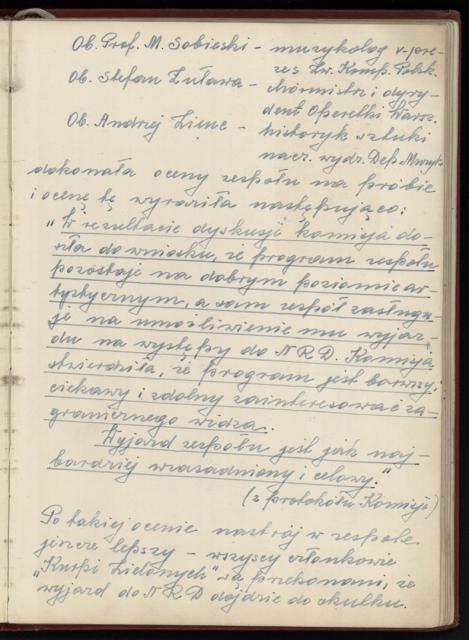 Ob. Prof. M. Sobieski - muzykolog v-pre-
zes Zw. Komp. Polsk.
Ob. Stefan Żuława - chórmistrz i dyry-
dent Operetki Warsz.
Ob. Andrzej - historyk sztuki
nacz. wydz. Dep. Muzyki
dokonała oceny zespołu na próbie
i ocenę tę wyraziła następująco:
"W rezultacie dyskusji komisja do-
szła do wniosku, że program zespołu
pozostaje na dobrym poziomie ar-
tystycznym, a sam zespół zasługu-
je na umożliwienie mu wyjaz-
du na występy do NRD. Komisja
stwierdziła, że program jest barwny,
ciekawy i zdolny zainteresować za-
granicznego widza.
Wyjazd zespołu jest jak naj-
bardziej uzasadniony i celowy."
(z protokółu Komisji)
Po takiej ocenie nastrój w zespole
jeszcze lepszy - wszyscy członkowie
"Kurpi Zielonych" są przekonani, że
wyjazd do NRD dojdzie do skutku.